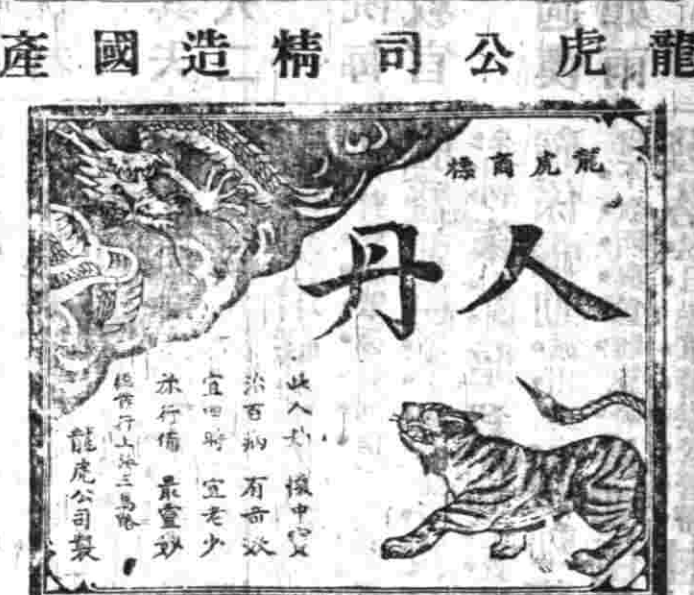 龍虎公司精造國產
龍虎商標
人丹
此人丹 懷中寶
治百病 有奇效
宜四時 宜老少
旅行備 最靈妙
總發行上海三馬路
龍虎公司製